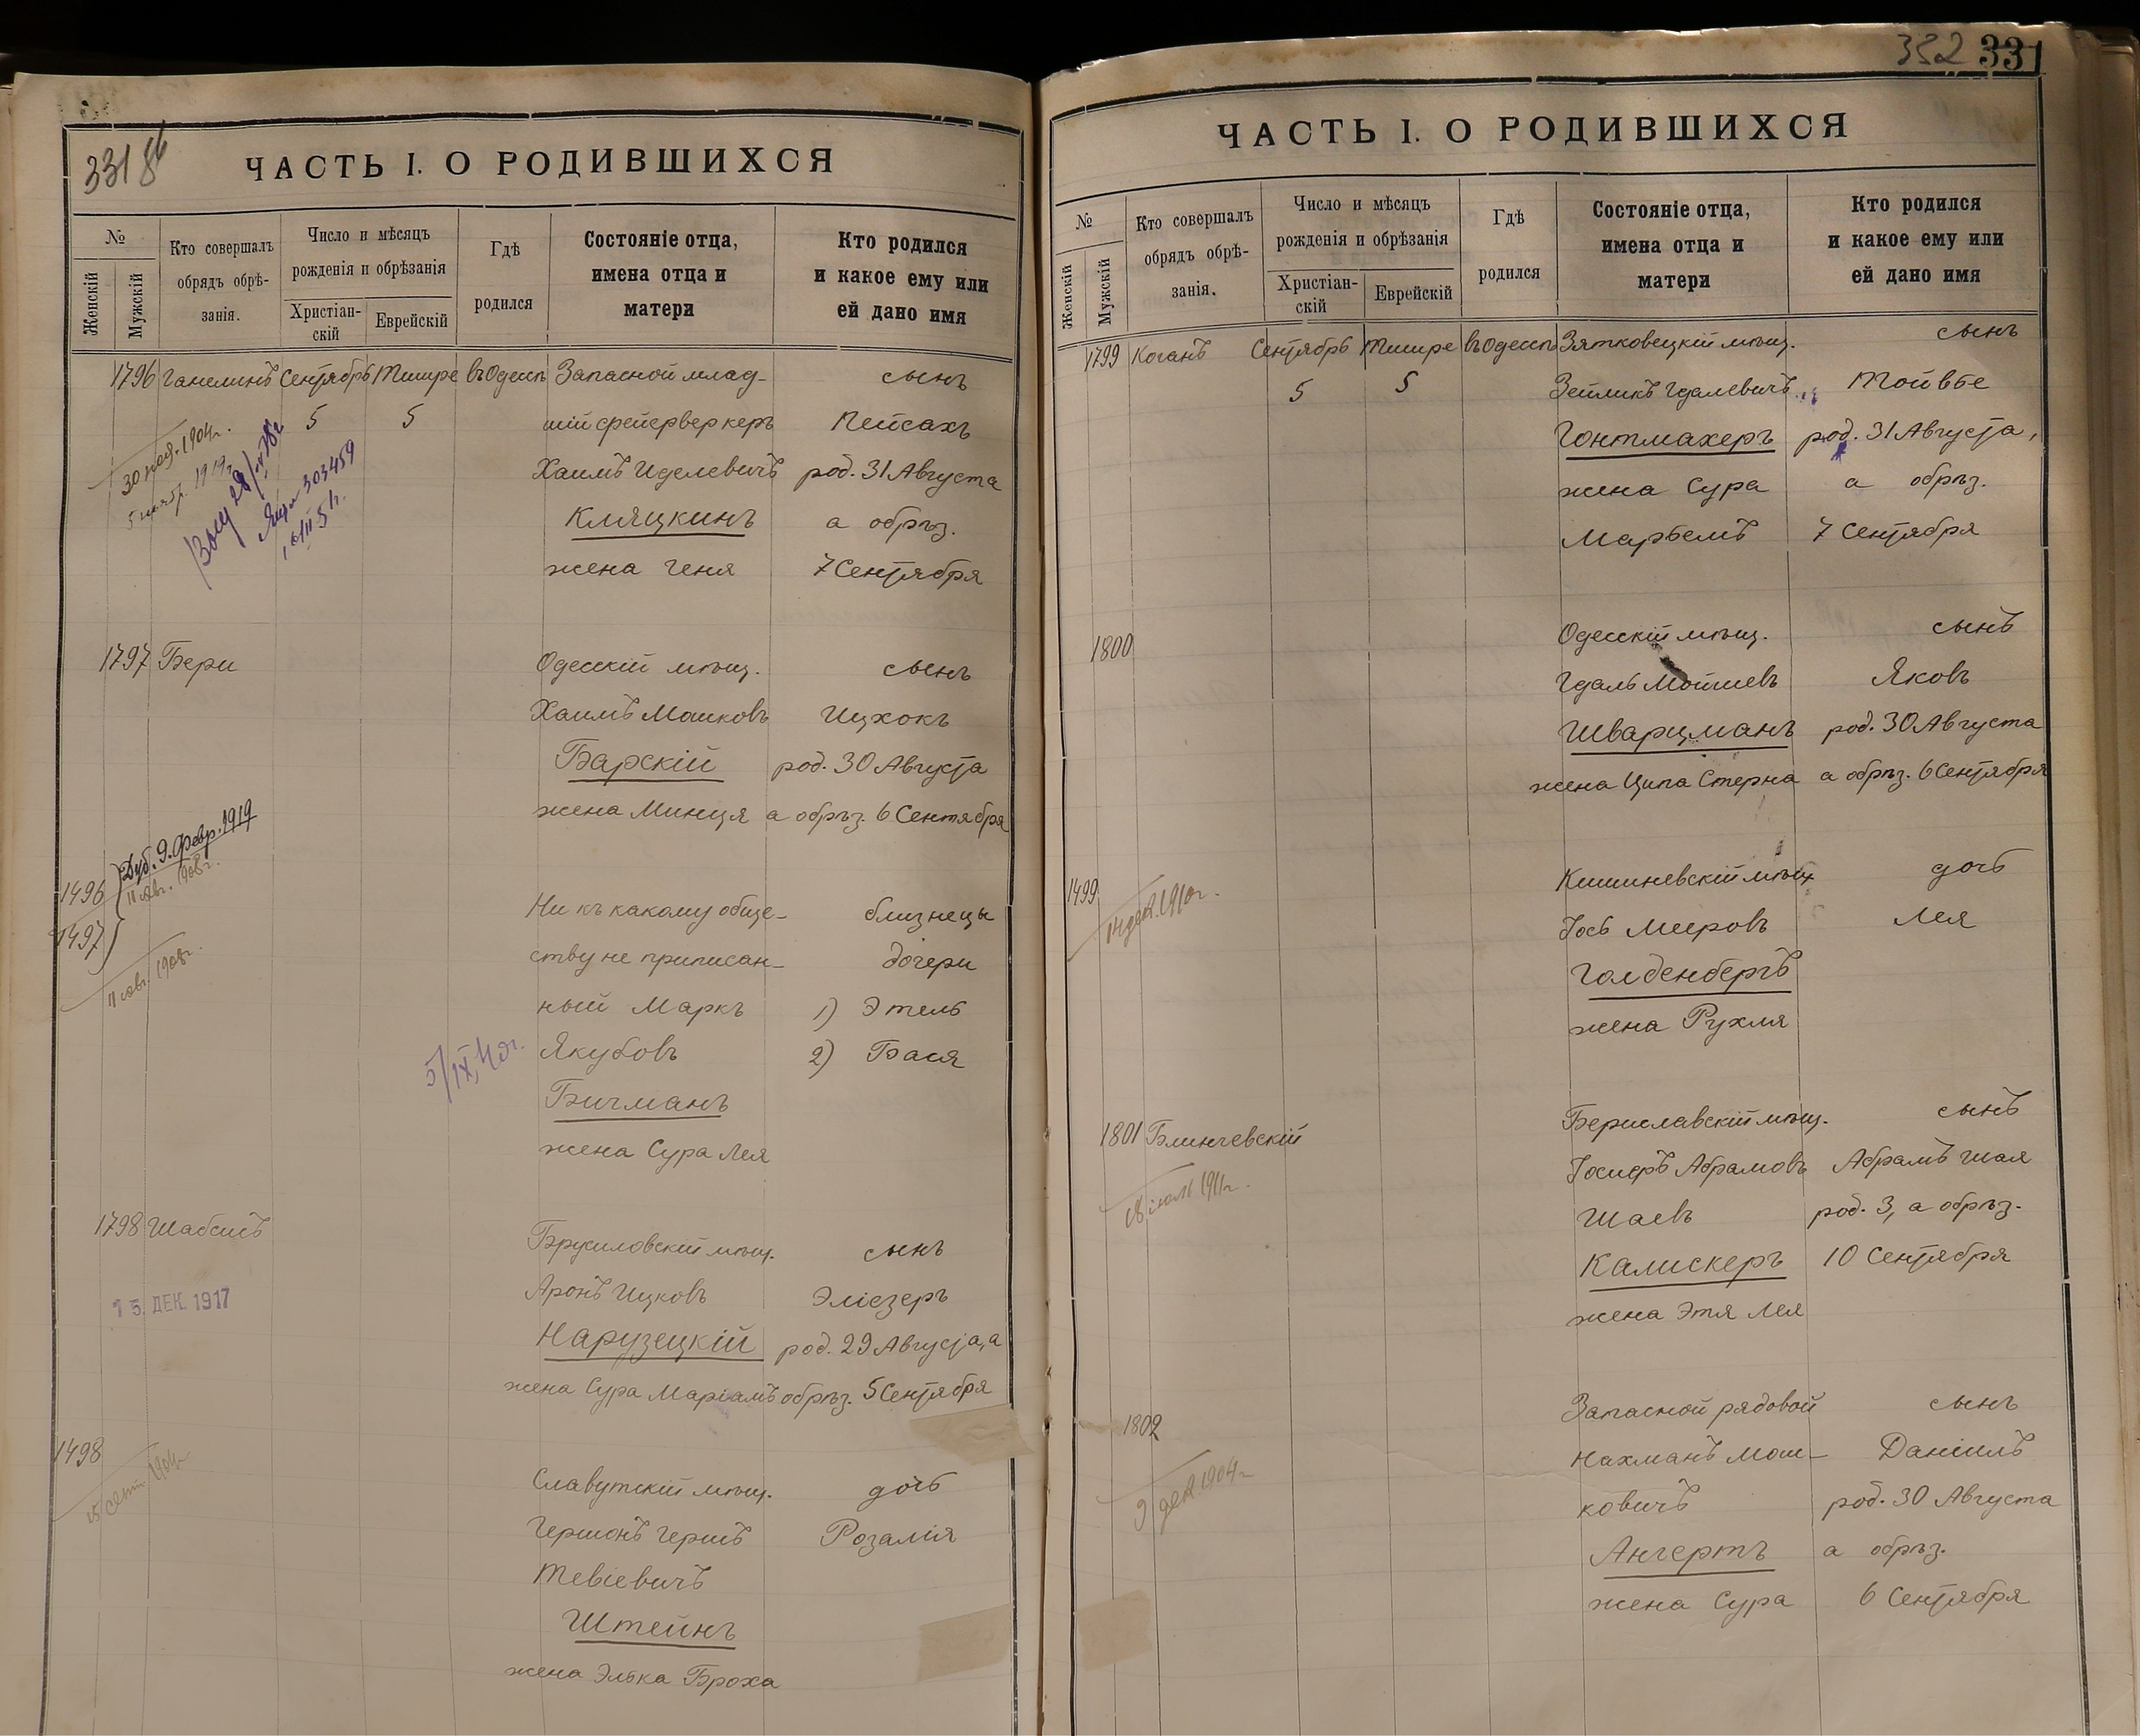 331
ЧАСТЬ I. О РОДИВШИХСЯ
№
Женскій
Мужскій
Кто совершалъ
обрядъ обрѣ-
занія.
Число и мѣсяцъ
рожденія и обрѣзанія
Христіан-
скій
Еврейскій
Гдѣ
родился
Состояніе отца,
имена отца и
матери
Кто родился
и какое ему или
ей дано имя
1796 Ганелинъ Сентябрь Тишре въ Одессѣ Запасной млад- сынъ
5 5 шій фейерверкеръ Пейсахъ
Хаимъ Иделевичъ род. 31 Августа
Кляцкинъ а обрѣз.
жена Геня 7 Сентября
30 ноя. 1904 г.
1919 г.
303459
1797 Бери Одесскій мѣщ. сынъ
Хаимъ Мошковъ Ицхокъ
Барскій род. 30 Августа
жена Минця а обрѣз. 6 Сентября
1496
1497
Дуб. 9. Февр. 1919
1908 г.
1908 г.
Ни къ какому обще- близнецы
ству не приписан- дочери
ный Маркъ 1) Этель
Якубовъ 2) Бася
Бичманъ
жена Сура Лея
5/IX,
1798 Шабсисъ Брусиловскій мѣщ. сынъ
Аронъ Ицковъ Эліезеръ
Нарузецкій род. 29 Августа, а
жена Сура Маріамъ обрѣз. 5 Сентября
15. ДЕК. 1917
1498 Славутскій мѣщ. дочь
Гершонъ Гершъ Розалія
Тевіевичъ
Штейнъ
жена Элька Броха
15 сент. 1904 г.
332 331
ЧАСТЬ I. О РОДИВШИХСЯ
№
Женскій
Мужскій
Кто совершалъ
обрядъ обрѣ-
занія.
Число и мѣсяцъ
рожденія и обрѣзанія
Христіан-
скій
Еврейскій
Гдѣ
родился
Состояніе отца,
имена отца и
матери
Кто родился
и какое ему или
ей дано имя
1799 Коганъ Сентябрь Тишре въ Одессѣ Зятковецкій мѣщ. сынъ
5 5 Зейликъ Гдалевичъ Тойвье
Гонтмахеръ род. 31 Августа,
жена Сура а обрѣз.
Марьемъ 7 Сентября
1800 Одесскій мѣщ. сынъ
Гдаль Мойшевъ Яковъ
Шварцманъ род. 30 Августа
жена Ципа Стерна а обрѣз. 6 Сентября
1499 Кишиневскій мѣщ. дочь
Іось Меировъ Лея
Голденбергъ
жена Рухля
14 дек. 1910 г.
1801 Блинчевскій Бериславскій мѣщ. сынъ
Іосифъ Абрамовъ Абрамъ Шая
Шаевъ род. 3, а обрѣз.
Калискеръ 10 Сентября
жена Этя Лея
18 іюль 1911 г.
1802 Запасной рядовой сынъ
Нахманъ Мош- Даніилъ
ковичъ род. 30 Августа
Ангертъ а обрѣз.
жена Сура 6 Сентября
9 дек. 1904 г.